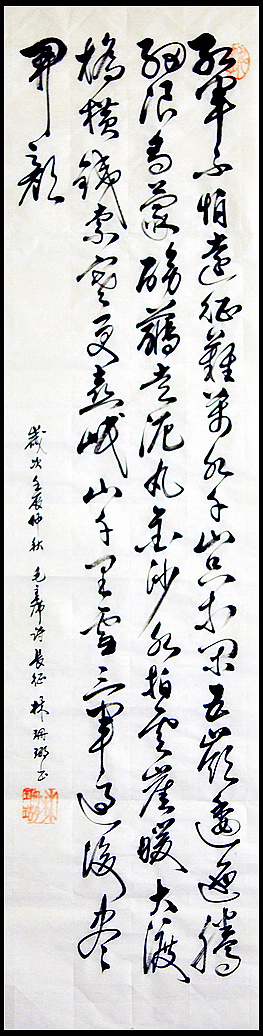 红军不怕远征难万水千山只等闲五岭逶迤腾
细浪乌蒙磅礴走泥丸金沙水拍云崖暖大渡
桥横铁索寒更喜岷山千里雪三军过后尽
开颜
岁次壬辰仲秋 毛主席诗长征 林珊瑚书